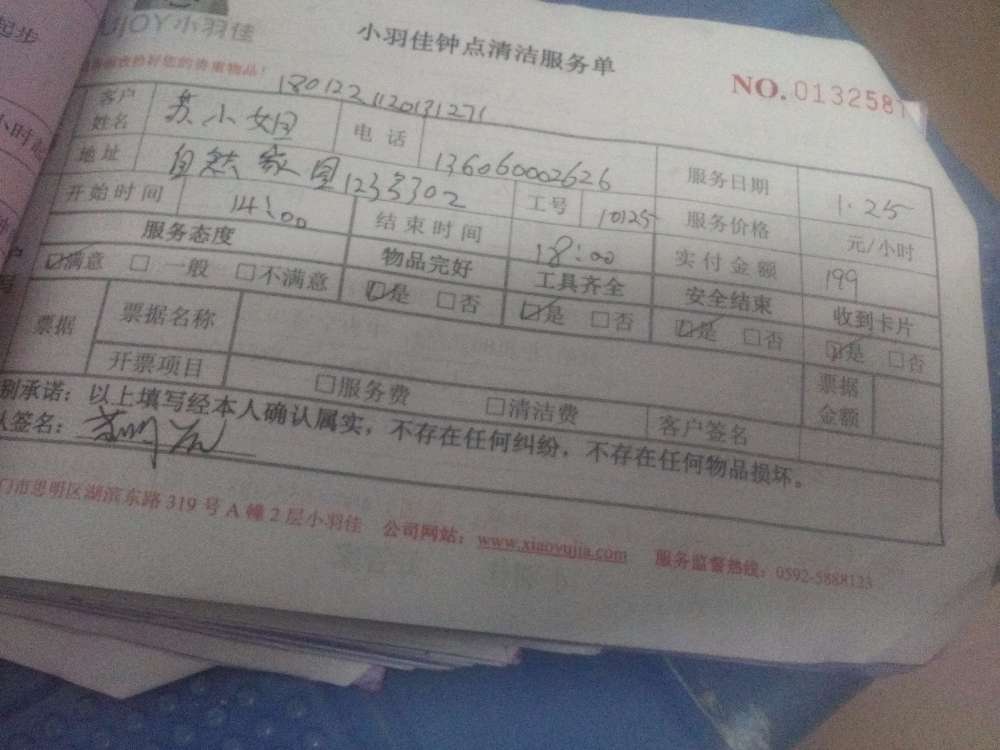 起步
UJOY小羽佳
小羽佳钟点清洁服务单
好您的贵重物品!
NO.0132581
1801221120131271
客户姓名 苏小姐 电话 136060002626 服务日期 1.25
地址 自然家园1233302 工号 10125 服务价格 元/小时
开始时间 14:00 结束时间 18:00 实付金额 199
服务态度 物品完好 工具齐全 安全结束 收到卡片
☑满意 □一般 □不满意 ☑是 □否 ☑是 □否 ☑是 □否 ☑是 □否
票据 票据名称 票据金额
开票项目 □服务费 □清洁费 客户签名
别承诺：以上填写经本人确认属实，不存在任何纠纷，不存在任何物品损坏。
签名：
门市思明区湖滨东路319号A幢2层小羽佳 公司网站：www.xiaoyujia.com 服务监督热线：0592-5888123